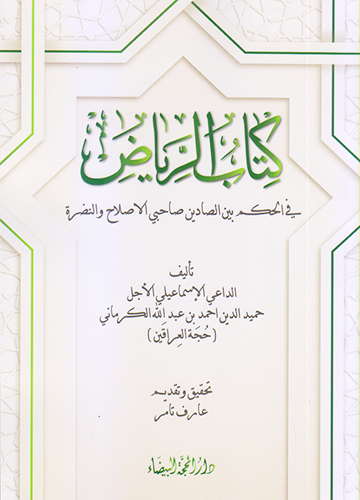 كِتَابُ الرِّيَاضِ
في الحكم بين الصادين صاحبي الاصلاح والنصرة
تأليف
الداعي الإسماعيلي الأجل
حميد الدين احمد بن عبد الله الكرماني
(حُجَة العِراقَين)
تحقيق وتقديم
عارف تامر
دار المحجة البيضاء